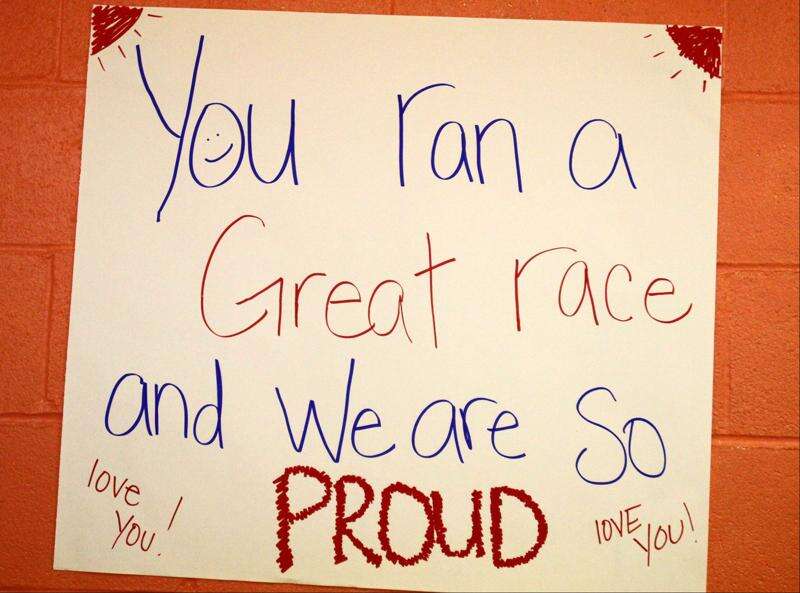 You ran a
Great race
and We are So
PROUD
love
You!
lovE
YOU!